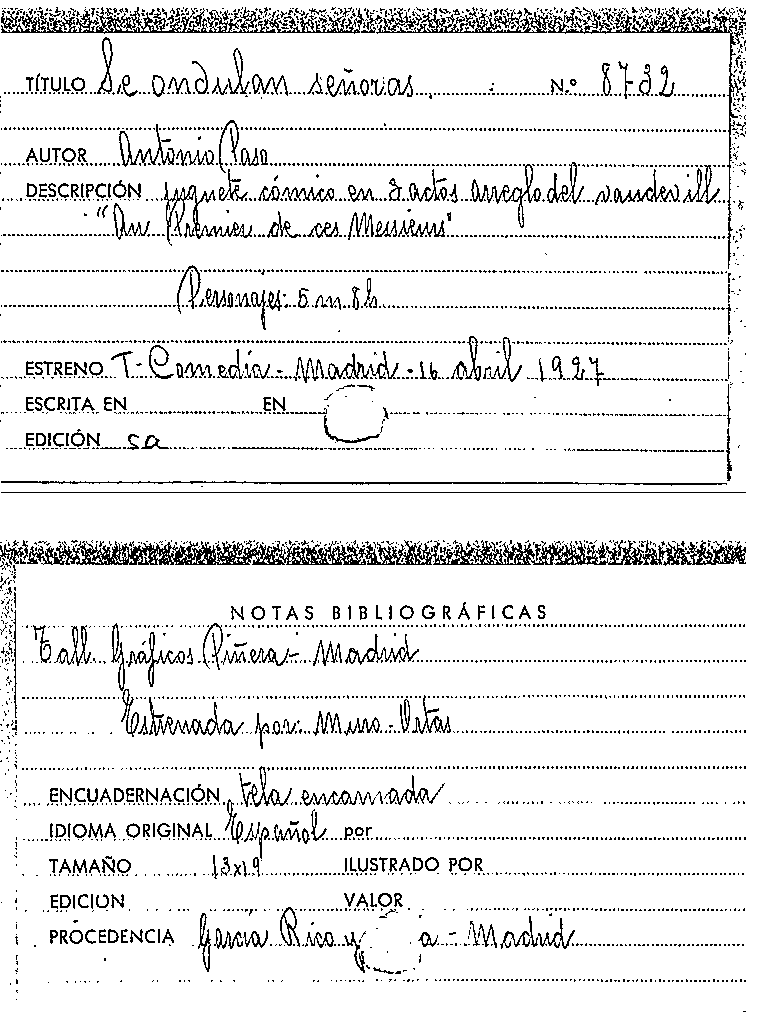 TÍTULO Se ondulan señoras. N.º 8732
AUTOR Antonio Paso
DESCRIPCIÓN juguete cómico en 3 actos arreglo del vaudevill
"Au Premier de ces Messieurs"
Personajes: 5 m 8 h
ESTRENO T. Comedia - Madrid - 16 abril 1927
ESCRITA EN EN
EDICIÓN sa
NOTAS BIBLIOGRÁFICAS
Tall. Gráficos Piñera - Madrid
Estrenada por: Muro - Ortas
ENCUADERNACIÓN tela encarnada
IDIOMA ORIGINAL Español por
TAMAÑO 13x19 ILUSTRADO POR
EDICION VALOR
PROCEDENCIA García Rico y a - Madrid